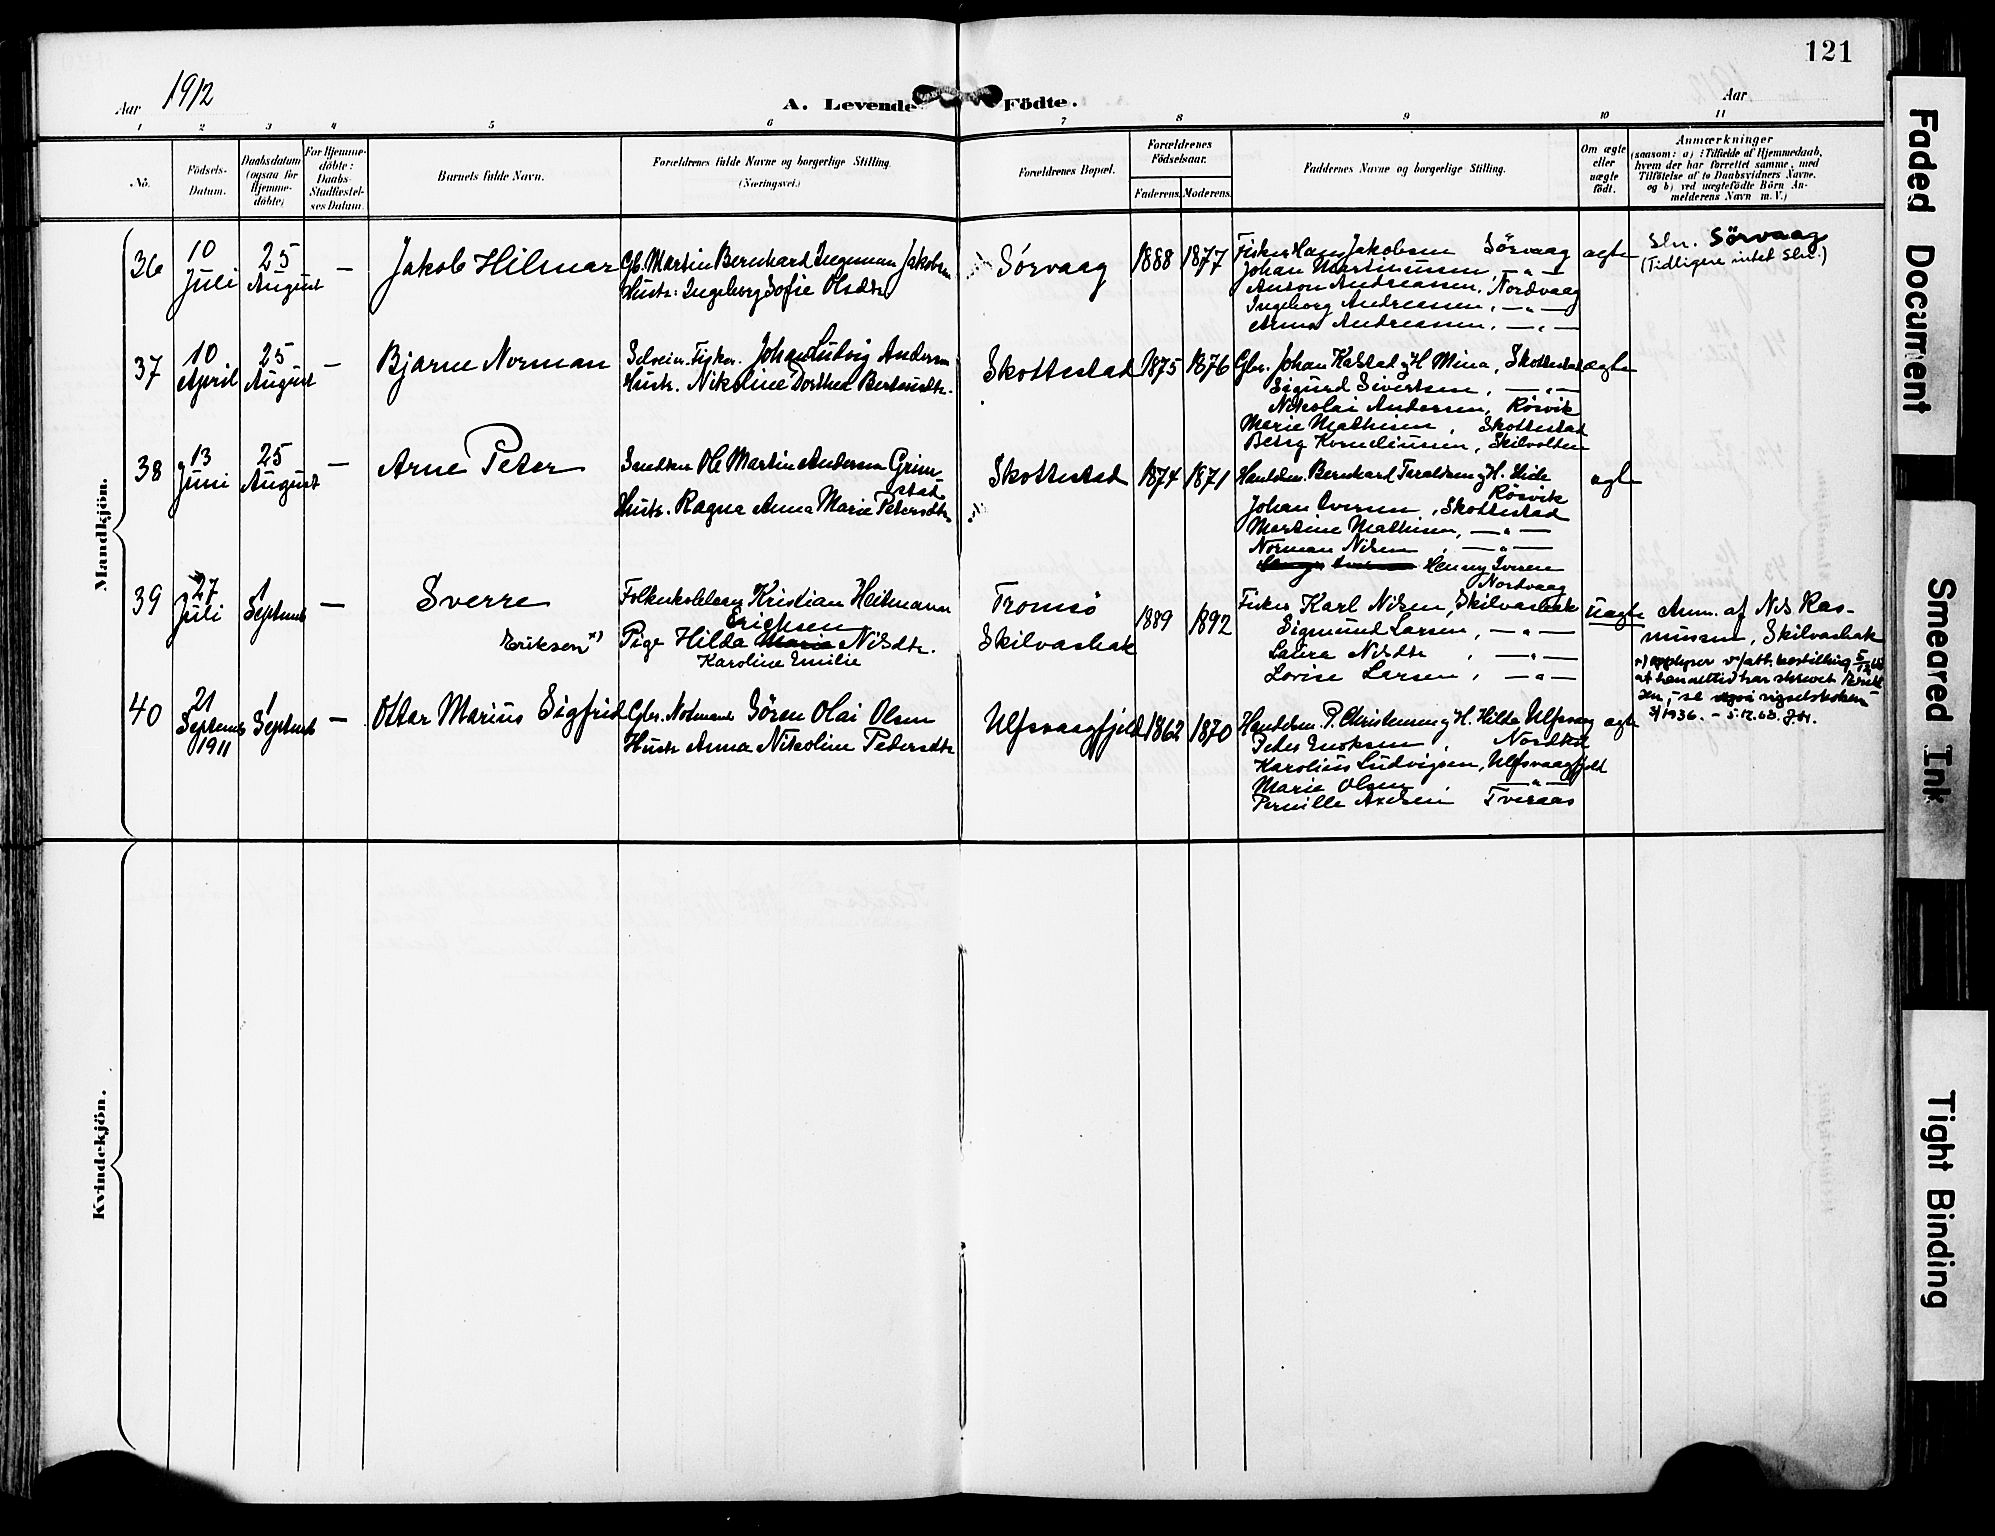 121
Aar 1912
A. Levende Födte.
Aar
1 2 3 4 5 6 7 8 9 10 11
No.
Födsels-
Datum.
Daabsdatum
(ogsaa for
Hjemme-
döbte)
For Hjemme-
döbte:
Daabs-
Stadfæstel-
ses Datum.
Barnets fulde Navn.
Forældrenes fulde Navne og borgerlige Stilling.
(Næringsvei.)
Forældrenes Bopæl.
Forældrenes
Födselsaar.
Faderens. Moderens.
Faddernes Navne og borgerlige Stilling.
Om ægte
eller
uægte
født.
Anmærkninger
(saasom: a) i Tilfælde af Hjemmedaab,
hvem der har forrettet samme, med
Tilföielse af to Daabsvidners Navne.
og b) ved uægtefödte Börn An-
melderens Navn m. V.)
Mandkjön.
36
10
Juli
25
August
—
Jakob Hilmar
Gb. Martin Bernhard Ingeman Jakobsen
Hustr: Ingeborg Sofie Olsdtr
Sørvaag
1888
1877
Fisker Hans Jakobsen Sörvaag
Johan Martinussen, — " —
Anton Andreassen, Nordvaag
Ingeborg Andreassen, — " —
Anna Andreassen, — " —
ægte
Sln. Sörvaag
(Tidligere intet Sln.)
37
10
April
25
August
—
Bjarne Norman
Selveier. Fisker. Johan Ludvig Andersen
Hustr. Nikoline Dorthea Berteusdtr.
Skottestad
1875
1876
Gbr. Johan Kalstad og H Mina, Skottestad
Sigurd Sivertsen, — " —
Nikolai Andersen, Rösvik
Marie Mathisen, Skottestad
Betsy Korneliussen, Skilvolten
ægte
38
13
Juni
25
August
—
Arne Peter
Ole Martin Andersen Grim-
stad
Hustr. Ragna Anna Marie Petersdtr.
Skottestad
1874
1871
Handelsm. Bernhard Taraldsen og H.
Rösvik
Johan Iversen, Skottestad
Martine Mathisen, — " —
Norman Nilsen, — " —
Henny Iversen
Nordvaag
ægte
39
27
Juli
1
Septemb
—
Sverre
Eriksen x)
Folkeskolelærer Kristian Heitmann
Erichsen
Pige Hilda Marie Nilsdtr.
Karoline Emilie
Tromsö
Skilvashak
1889
1892
Fisker Karl Nilsen, Skilvashak
Sigmund Larsen, — " —
Laura Nilsdtr, — " —
Lovise Larsen, — " —
uægte
Anm. af Nils Ras-
mussen, Skilvashak
x) opplyser v/att. bestilling 5/12 63
at han alltid har skrevet Erik
sen, - se også vigselsboken
3/1936. - 5.12.63.
40
21
Septemb
1911
1
Septemb
—
Ottar Marius Sigfrid
Gbr. Nordmand Sören Olai Olsen
Hustr Anna Nikoline Pedersdtr
Ulfsvaagfjeld
1862
1870
Handelsm. P. Christensen og H. Hilda Ulfsvaag
Peder Enoksen,
Karolius Ludvigsen, Ulfsvaagfjeld
Marie Olsen — " —
Pernille Axelsen Tveraas
ægte
Kvindekjön.
Faded Document
Smeared Ink
Tight Binding